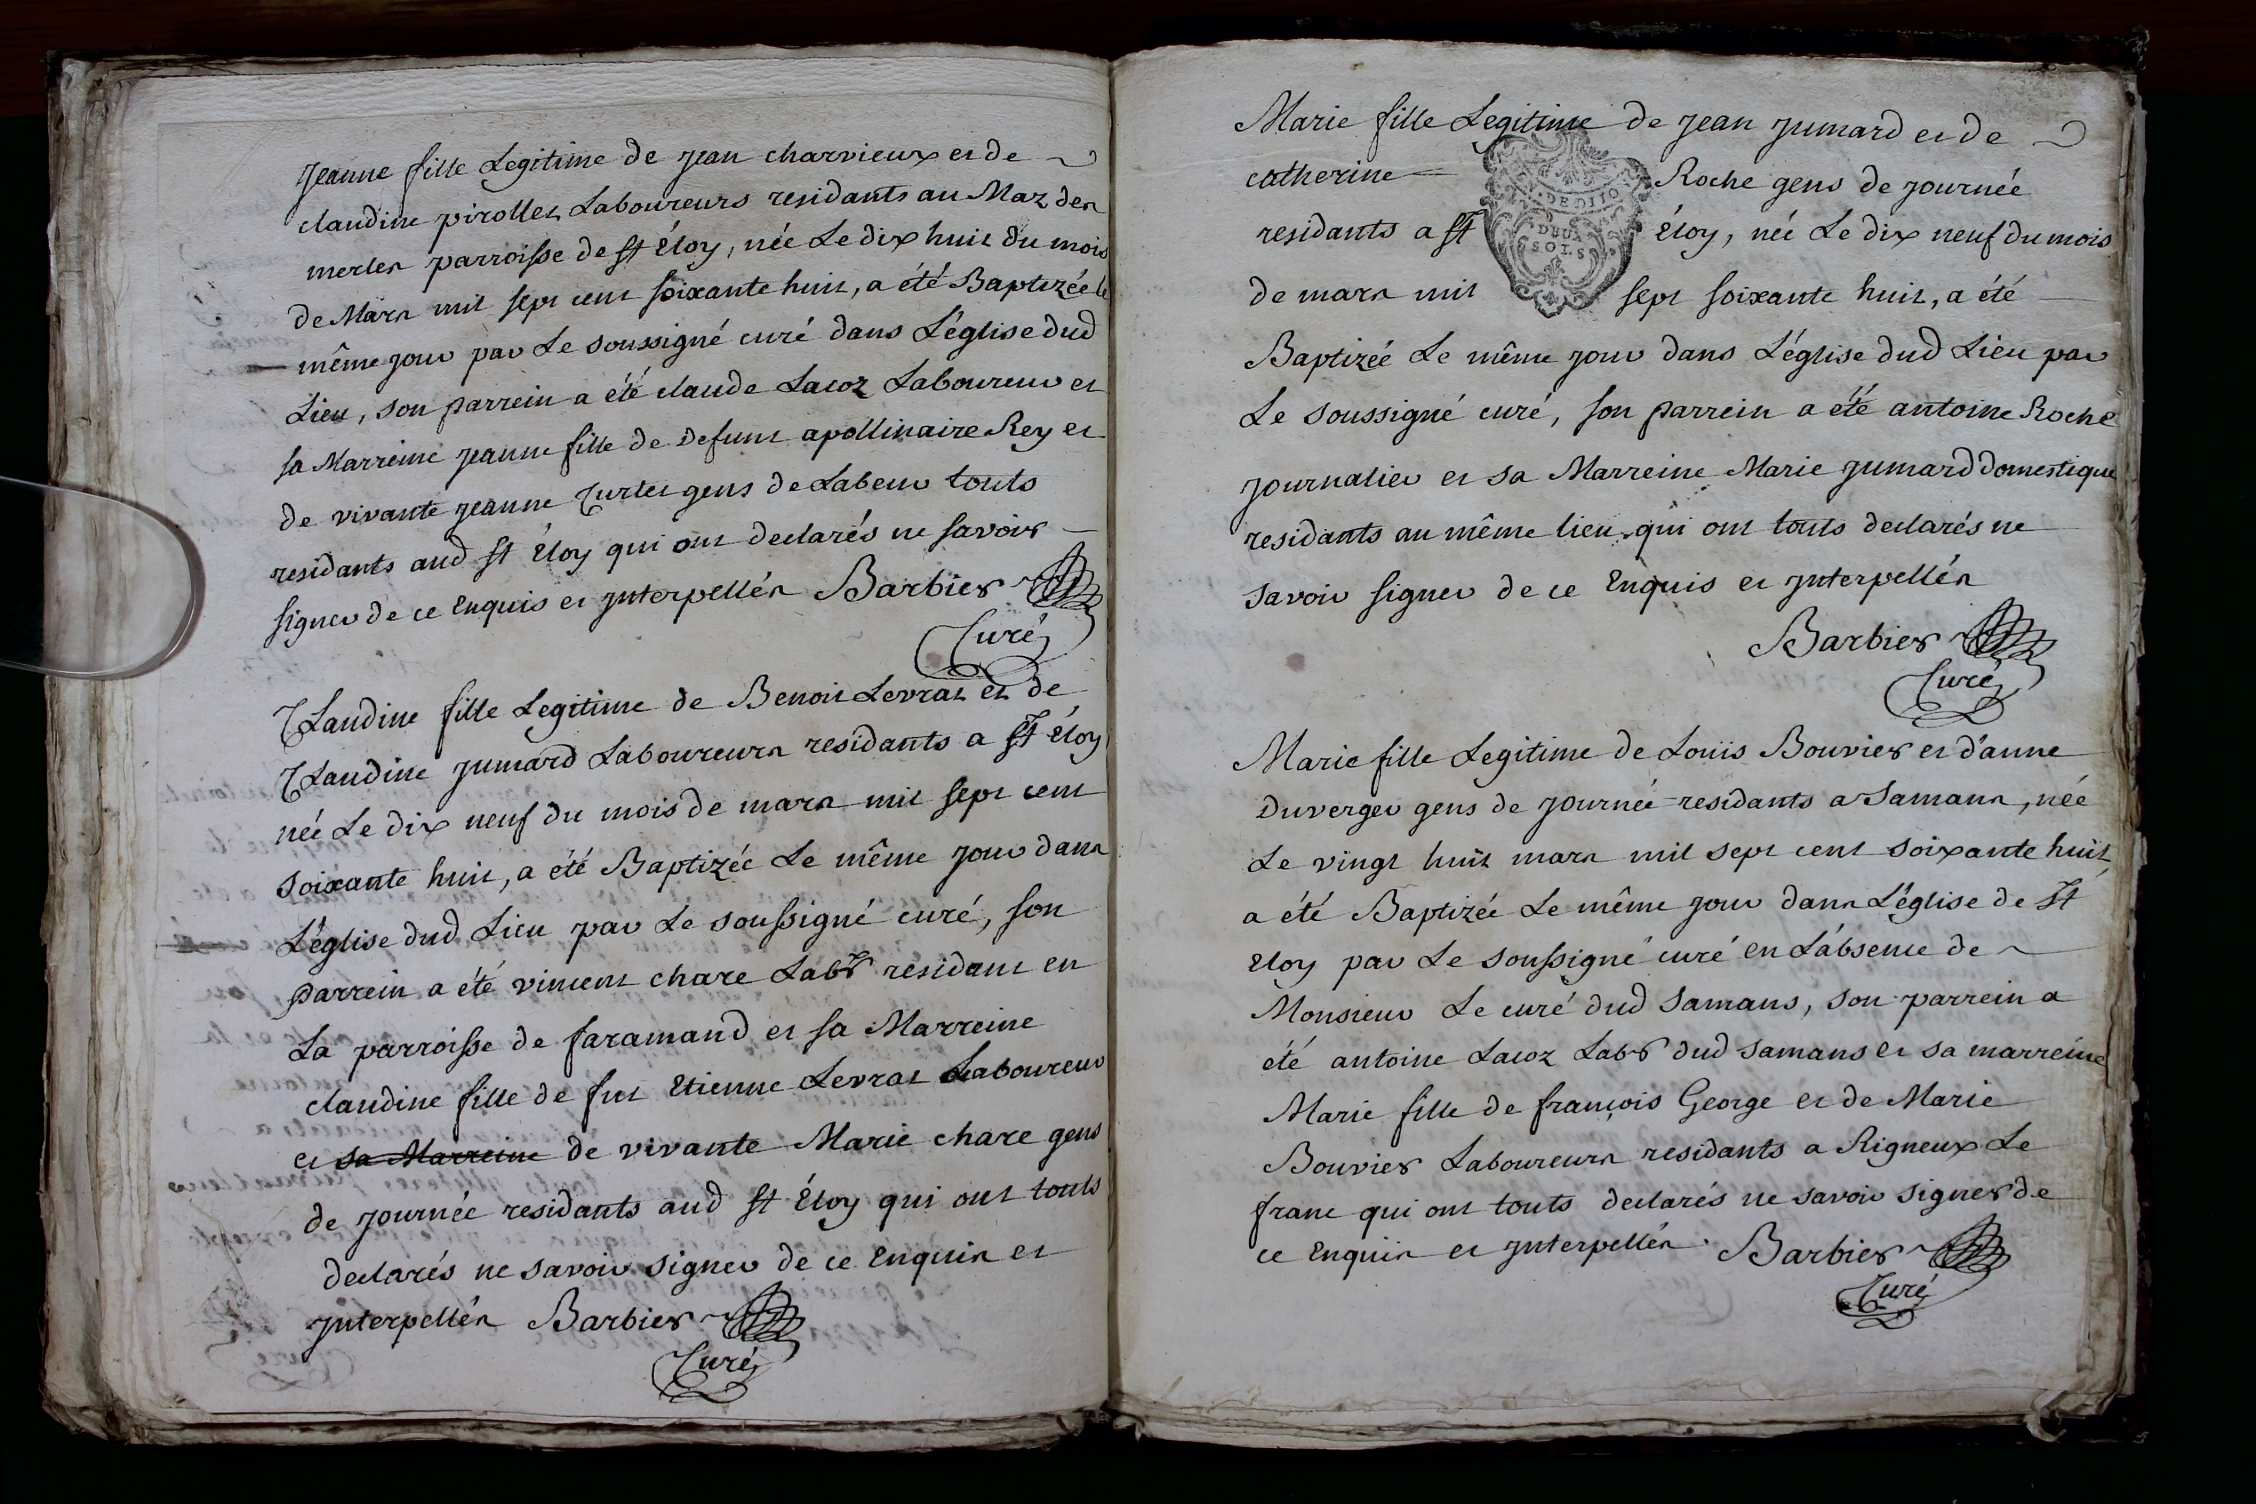 Jeanne fille Legitime de Jean charvieux et de
claudine pirollet Laboureurs residants au Maz des
merles parroisse de St Éloy, née Le dix huit du mois
de Mars mil sept cent soixante huit, a été Baptizée le
même jour par Le soussigné curé dans L'église dud
Lieu, son parrein a été claude Lacoz Laboureur et
sa Marreine jeanne fille de defunt apollinaire Rey et
de vivante jeanne Curtet gens de Labeur touts
residants aud St Éloy qui ont declarés ne savoir
signer de ce Enquis et Interpellés Barbier
Curé
Claudine fille Legitime de Benoit Levrat et de
Claudine Jumard Laboureurs residants a St Éloy
née Le dix neuf du mois de mars mil sept cent
soixante huit, a été Baptizée Le même jour dans
L'église dud Lieu par Le soussigné curé, son
parrein a été vincent chare Labr residant en
La parroisse de faramand et sa Marreine
claudine fille de fut Etienne Levrat Laboureur
et sa Marreine de vivante Marie chare gens
de journée residants aud St Éloy qui ont touts
declarés ne savoir signer de ce Enquis et
Interpellés Barbier
Curé
Marie fille Legitime de Jean Jumard et de
catherine Roche gens de journée
residants a St Éloy, née Le dix neuf du mois
de mars mil sept soixante huit, a été
DEUX
SOLS
Baptizée Le même jour dans L'église dud Lieu par
Le soussigné curé, son parrein a été antoine Roche
journalier et sa Marreine Marie Jumard domestique
residants au même lieu qui ont touts declarés ne
savoir signer de ce Enquis et Interpellés
Barbier
Curé
Marie fille Legitime de Louis Bouvier et d'anne
Duverger gens de journée residants a Samans, née
Le vingt huit mars mil sept cent soixante huit,
a été Baptizée Le même jour dans L'église de St
Eloy par Le soussigné curé en L'absence de
Monsieur Le curé dud Samans, son parrein a
été antoine Lacoz Labr dud Samans et sa marreine
Marie fille de françois George et de Marie
Bouvier Laboureurs residants a Rigneux Le
franc qui ont touts declarés ne savoir signer de
ce Enquis et Interpellés. Barbier
Curé